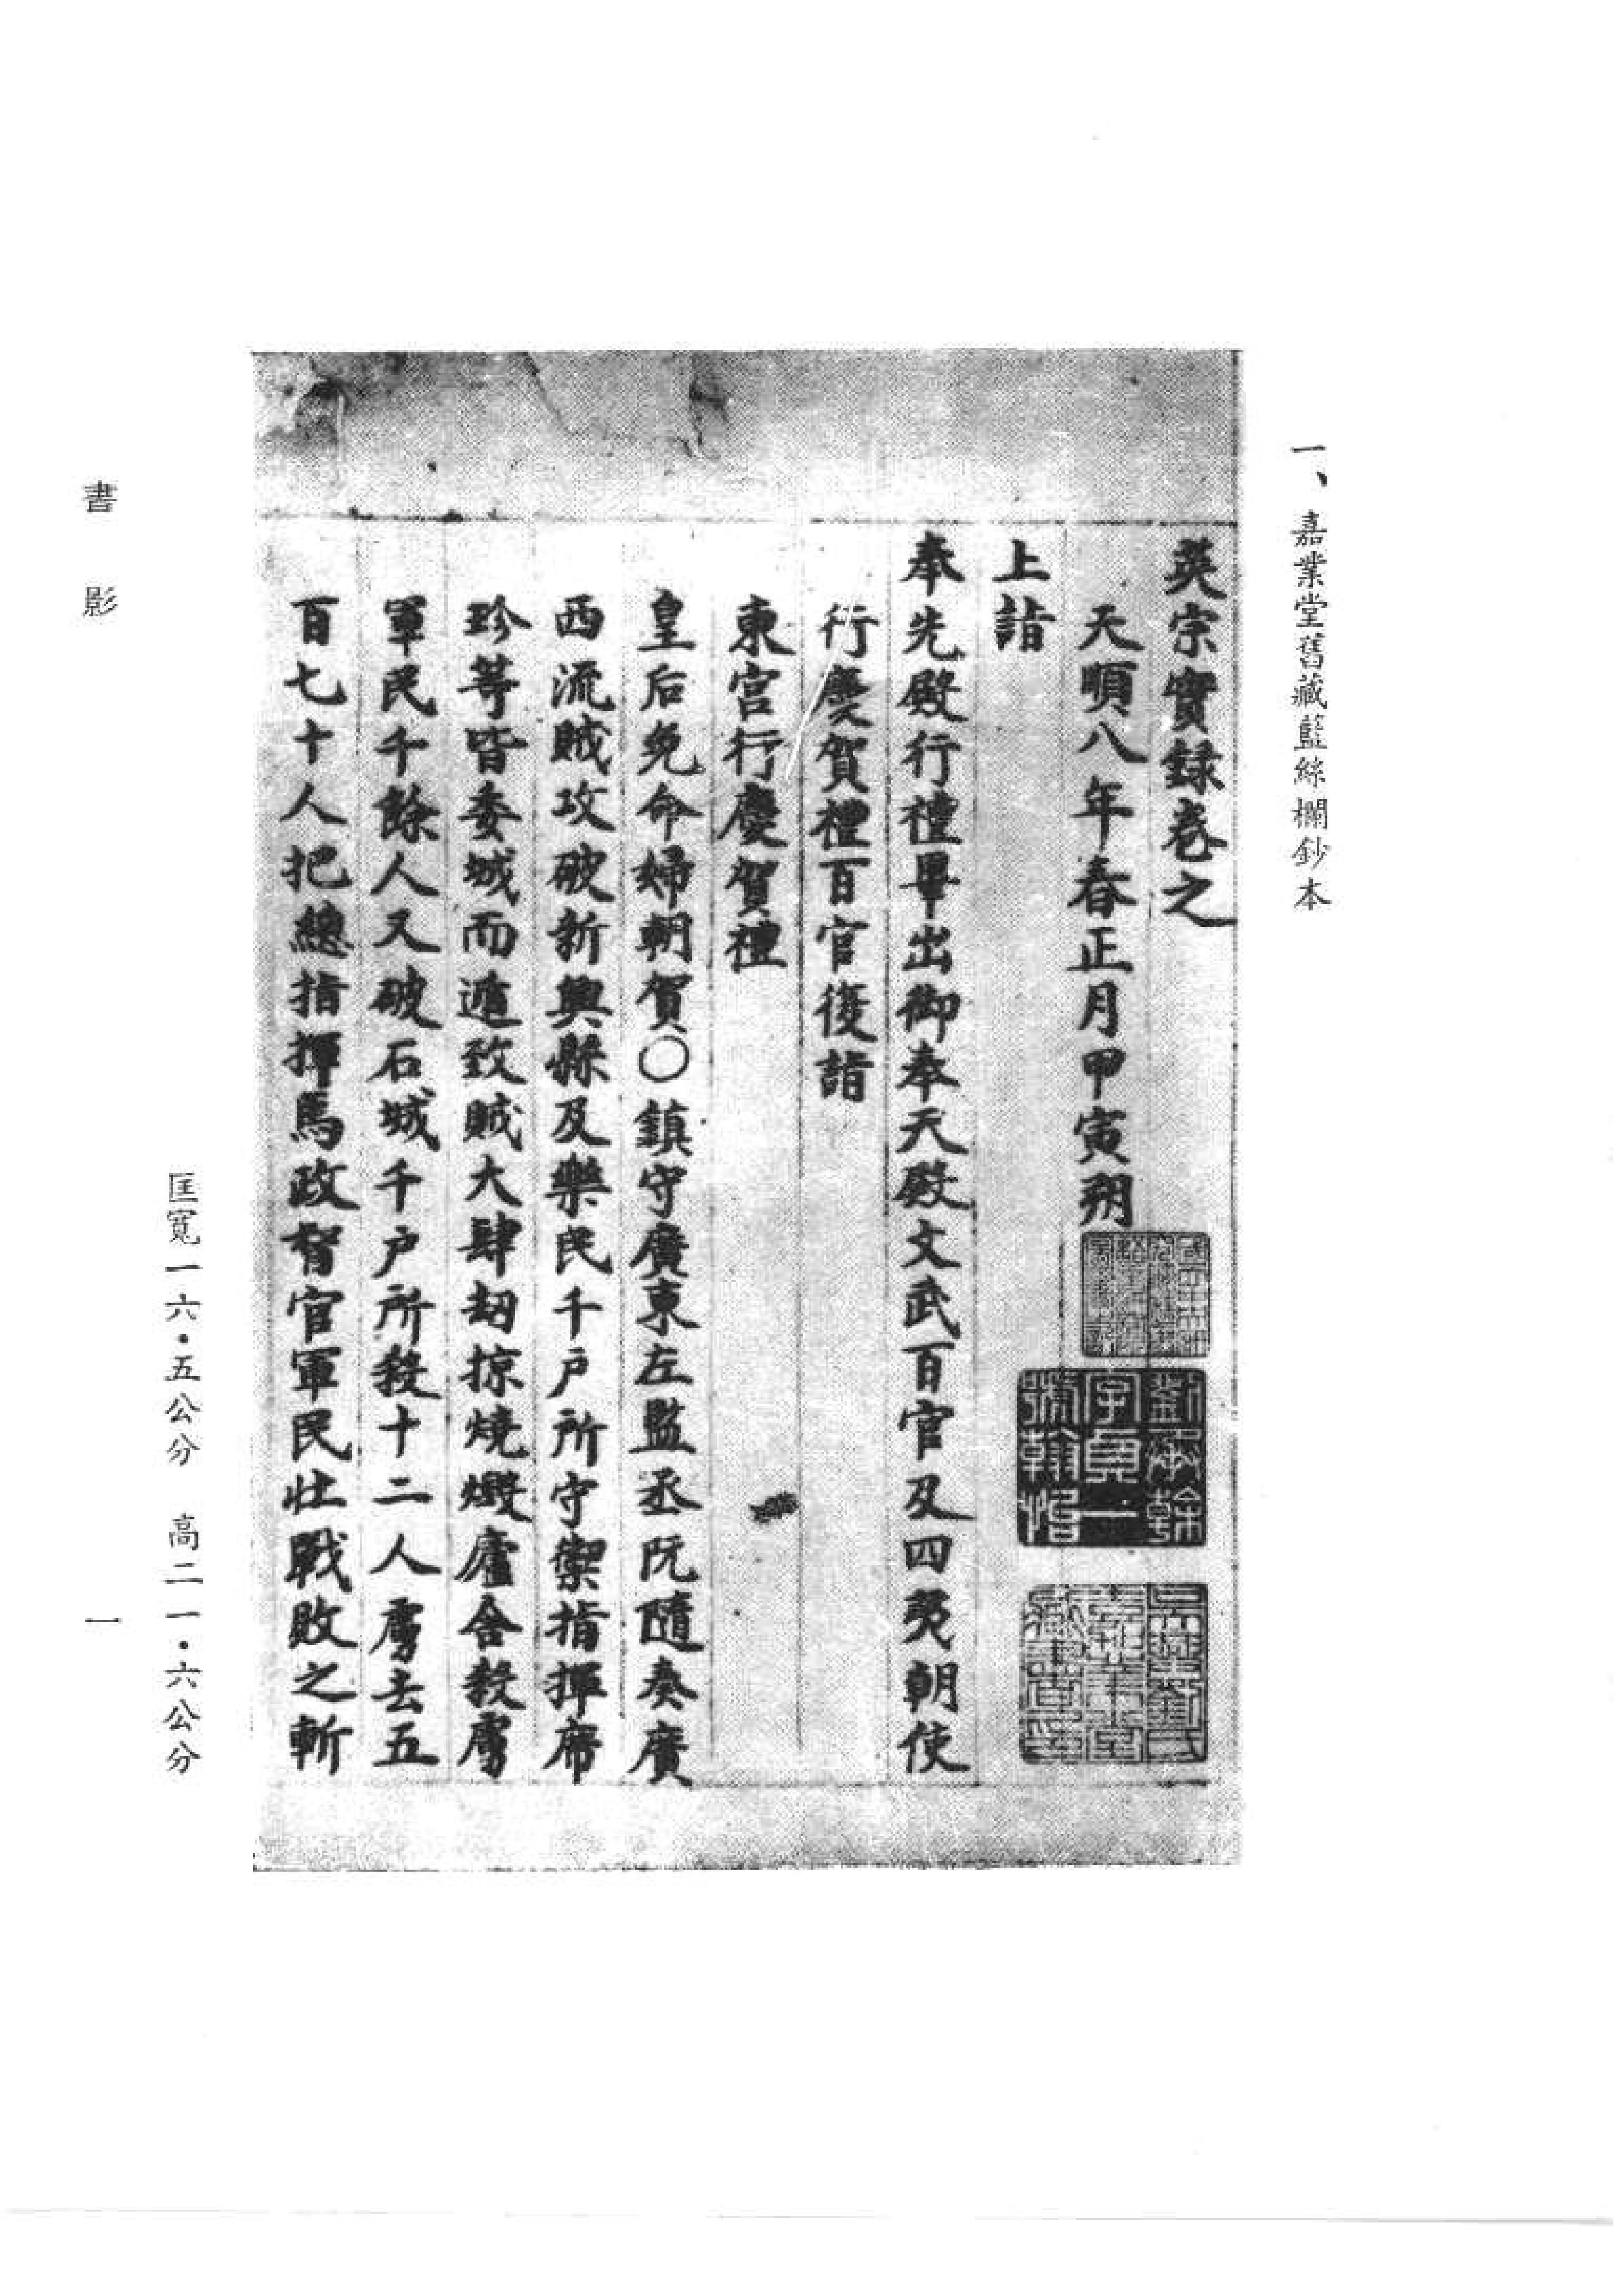 一、嘉業堂舊藏藍絲欄鈔本
英宗實録卷之
天順八年春正月甲寅朔
上詣
奉先殿行禮畢出御奉天殿文武百官及四夷朝使
行慶賀禮百官復詣
東宮行慶賀禮
皇后免命婦朝賀○鎮守廣東左監丞阮隨奏廣
西流賊攻破新興縣及樂民千戶所守禦指揮席
珍等皆委城而遁致賊大肆刼掠燒燬廬舍殺虜
軍民千餘人又破石城千户所殺十二人虜去五
百七十人把總指揮馬政督官軍民壯戰敗之斬
劉承幹
字貞一
號翰怡
吳興劉氏
嘉業堂
藏書印
匡寬一六·五公分 高二一·六公分
書影
一